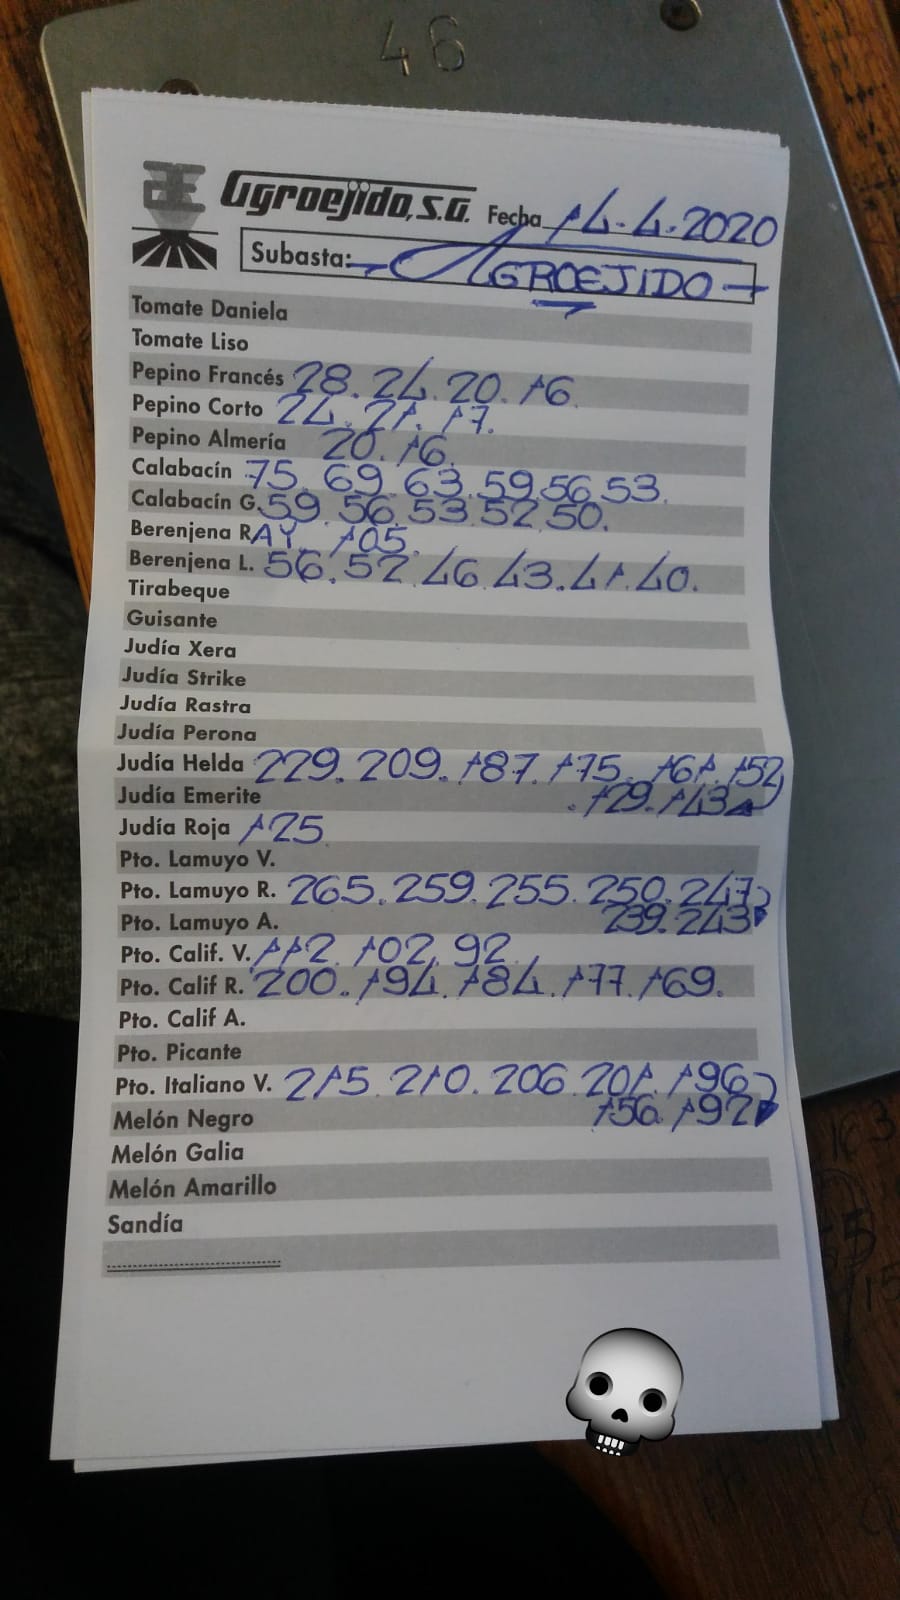 46
Agroejido, S.A. Fecha 14-4-2020
Subasta: AGROEJIDO
Tomate Daniela
Tomate Liso
Pepino Francés 28. 24. 20. 16.
Pepino Corto 24. 21. 17.
Pepino Almería 20. 16.
Calabacín 75. 69. 63. 59. 56. 53.
Calabacín G. 59. 56. 53. 52. 50.
Berenjena RAY. 105.
Berenjena L. 56. 52. 46. 43. 41. 40.
Tirabeque
Guisante
Judía Xera
Judía Strike
Judía Rastra
Judía Perona
Judía Helda 229. 209. 187. 175. 161. 152
Judía Emerite . 129. 143
Judía Roja 125
Pto. Lamuyo V.
Pto. Lamuyo R. 265. 259. 255. 250. 247
Pto. Lamuyo A. 239. 243
Pto. Calif. V. 112. 102. 92
Pto. Calif R. 200. 194. 184. 177. 169.
Pto. Calif A.
Pto. Picante
Pto. Italiano V. 215. 210. 206. 201. 196
Melón Negro 156. 192
Melón Galia
Melón Amarillo
Sandía